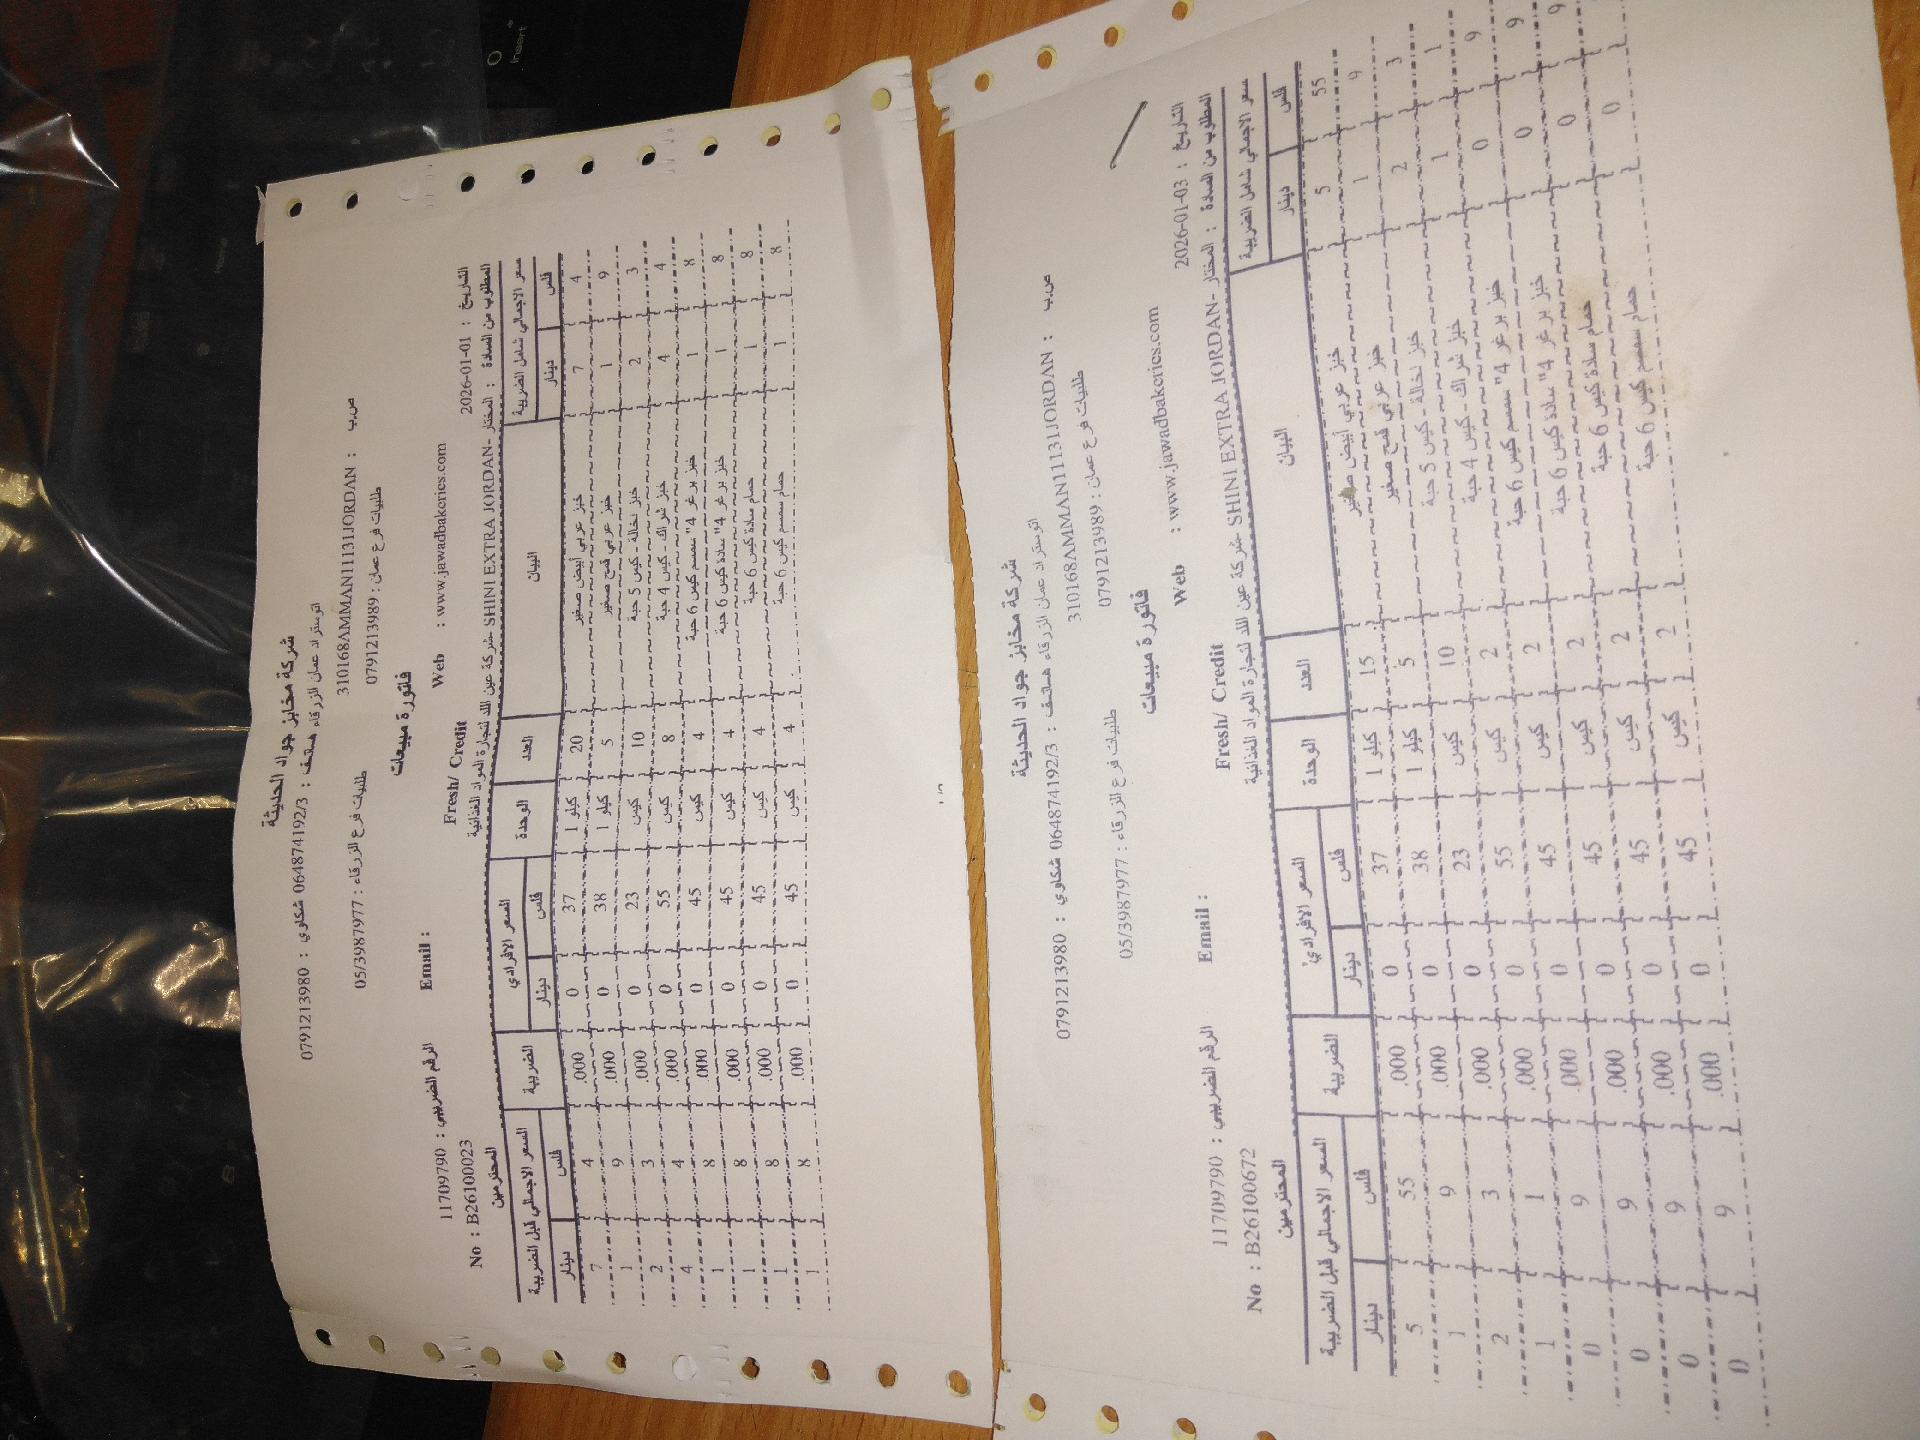 شركة مخابز جواد الحديثة
اتوستراد عمان الزرقاء هاتف : 064874192/3 شكاوي : 0791213980
ص.ب : 310168AMMAN11131JORDAN
طلبيات فرع عمان : 0791213989 طلبيات فرع الزرقاء : 05/3987977
فاتورة مبيعات
Web : www.jawadbakeries.com Email : الرقم الضريبي : 11709790
التاريخ : 2026-01-01 Fresh/ Credit No : B26100023
المطلوب من السادة : المختار -SHINI EXTRA JORDAN شركة عين اللد لتجارة المواد الغذائية المحترمين
سعر الاجمالي شامل الضريبة البيان العدد الوحدة السعر الافرادي الضريبة السعر الاجمالي قبل الضريبة
دينار فلس دينار فلس دينار فلس
7 4 خبز عربي أبيض صغير 20 كيلو 1 0 37 .000 7 4
1 9 خبز عربي قمح صغير 5 كيلو 1 0 38 .000 1 9
2 3 خبز نخالة - كيس 5 حبة 10 كيس 0 23 .000 2 3
4 4 خبز شراك - كيس 4 حبة 8 كيس 0 55 .000 4 4
1 8 خبز بر غر 4" سمسم كيس 6 حبة 4 كيس 0 45 .000 1 8
1 8 خبز بر غر 4" سادة كيس 6 حبة 4 كيس 0 45 .000 1 8
1 8 حمام سادة كيس 6 حبة 4 كيس 0 45 .000 1 8
1 8 حمام سمسم كيس 6 حبة 4 كيس 0 45 .000 1 8
شركة مخابز جواد الحديثة
اتوستراد عمان الزرقاء هاتف : 064874192/3 شكاوي : 0791213980
ص.ب : 310168AMMAN11131JORDAN
طلبيات فرع عمان : 0791213989 طلبيات فرع الزرقاء : 05/3987977
فاتورة مبيعات
Web : www.jawadbakeries.com Email : الرقم الضريبي : 11709790
التاريخ : 2026-01-03 Fresh/ Credit No : B26100672
المطلوب من السادة : المختار -SHINI EXTRA JORDAN شركة عين اللد لتجارة المواد الغذائية المحترمين
سعر الاجمالي شامل الضريبة البيان العدد الوحدة السعر الافرادي الضريبة السعر الاجمالي قبل الضريبة
دينار فلس دينار فلس دينار فلس
5 55 خبز عربي أبيض صغير 15 كيلو 1 0 37 .000 5 55
1 9 خبز عربي قمح صغير 5 كيلو 1 0 38 .000 1 9
2 3 خبز نخالة - كيس 5 حبة 10 كيس 0 23 .000 2 3
1 1 خبز شراك - كيس 4 حبة 2 كيس 0 55 .000 1 1
0 9 خبز بر غر 4" سمسم كيس 6 حبة 2 كيس 0 45 .000 0 9
0 9 خبز بر غر 4" سادة كيس 6 حبة 2 كيس 0 45 .000 0 9
0 9 حمام سادة كيس 6 حبة 2 كيس 0 45 .000 0 9
0 حمام سمسم كيس 6 حبة 2 كيس 0 45 .000 0 9
Insert